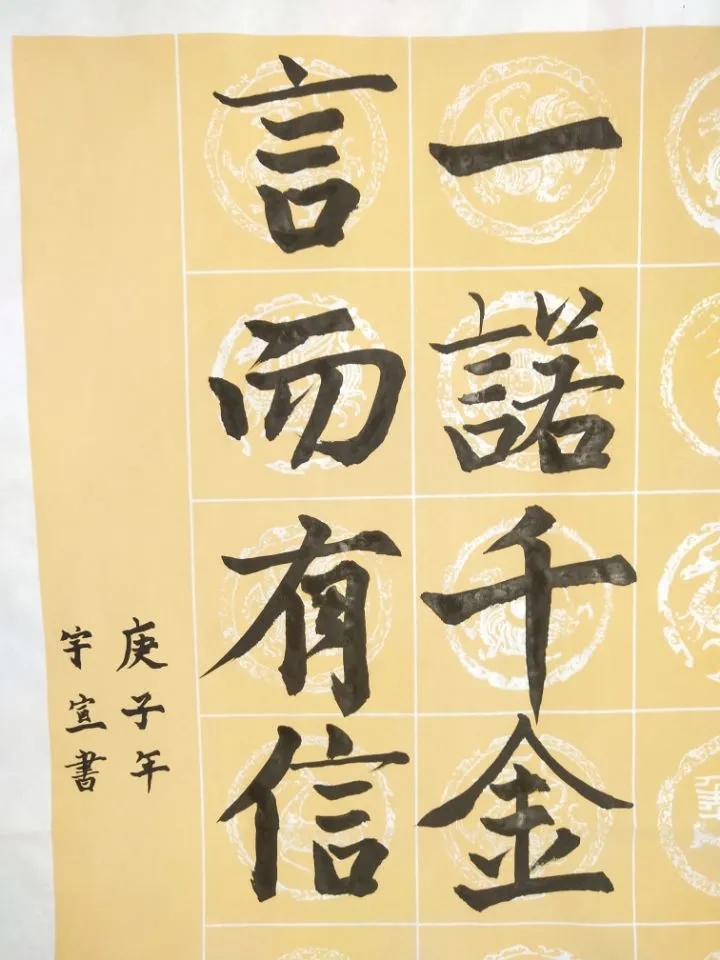 一諾千金
言而有信
庚子年
宇宣書